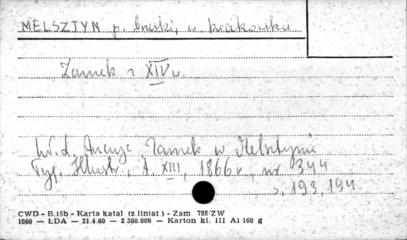 MELSZTYN p. brzeski, w. krakowskie
Zamek z XIV w.
Wł. L. Anczyc Zamek w Melsztynie
Tyg. Illustr., t. XIII, 1866 r., nr 344
s. 193, 194
CWD - B.15b - Karta katal. (z liniat.) - Zam 788/ZW
1060 - ŁDA - 21.4.60 - 2 360 000 - Karton kl. III A1 160 g